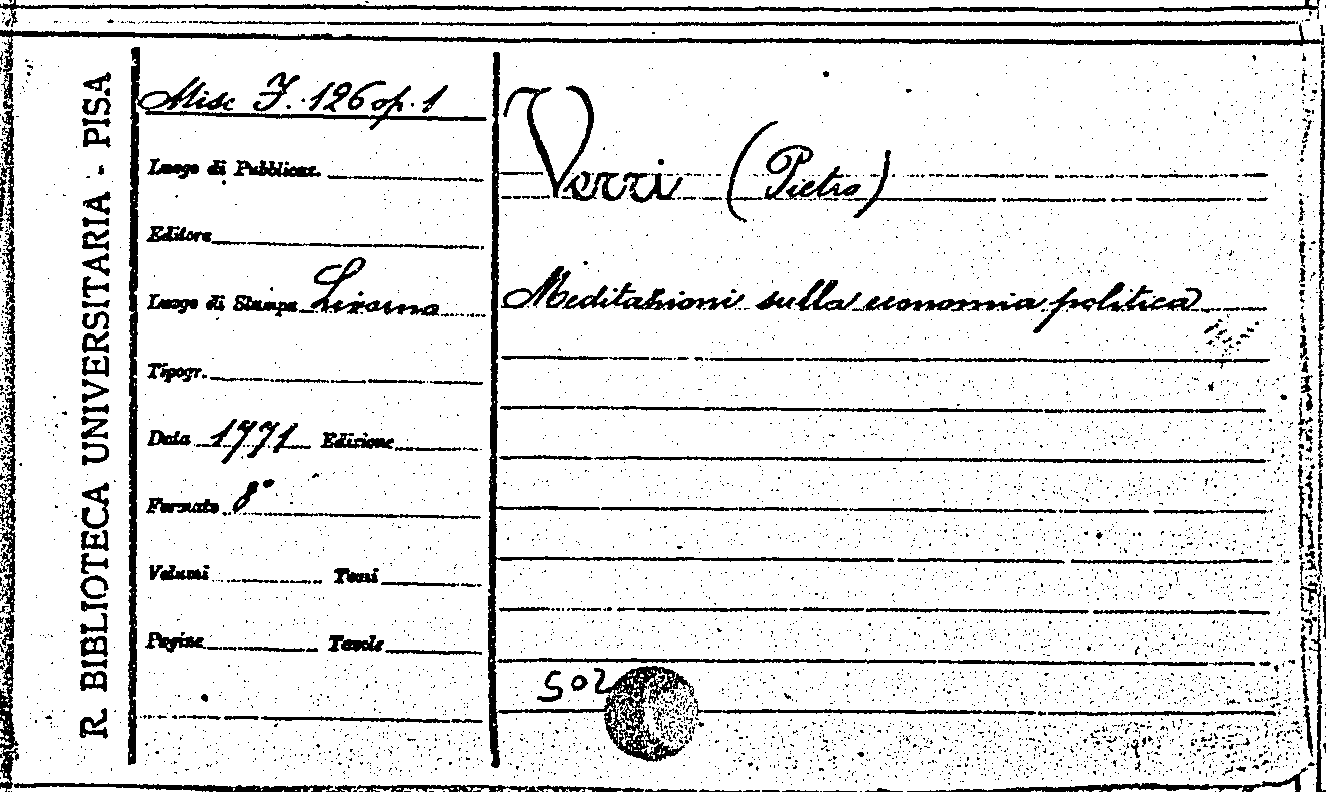 R. BIBLIOTECA UNIVERSITARIA - PISA
Misc J. 126 op. 1
Luogo di Pubblicaz.
Editore
Luogo di Stampa Livorno
Tipogr.
Data 1771 Edizione
Formato 8°
Volumi Tomi
Pagine Tavole
Verri (Pietro)
Meditazioni sulla economia politica
502